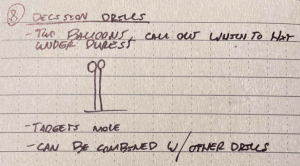 8 DECISION DRILLS
- TWO BALLOONS, CALL OUT WHICH TO HIT
UNDER DURESS
- TARGETS MOVE
- CAN BE COMBINED W/ OTHER DRILLS